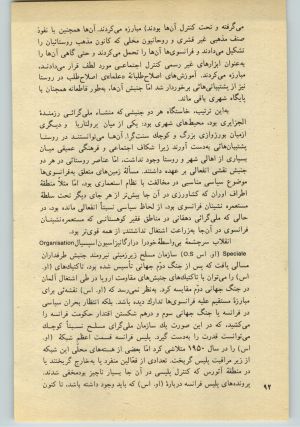 می‌گرفته و تحت کنترل آن‌ها بودند) مبارزه می‌کردند. آن‌ها همچنین با نفوذ
صنف مذهبی غیر قشری و روحانیون محلی که کانون مذهب روستائیان را
تشکیل می‌دادند و فرانسوی‌ها آن‌ها را تحمل می‌کردند و حتی گاهی آن‌ها را
به‌عنوان ابزارهای غیر رسمی کنترل اجتماعی مورد لطف قرار می‌دادند،
مبارزه می‌کردند. آموزش‌های اصلاح‌طلبانهٔ «علمای» اصلاح‌طلب در روستا
نیز از پشتیبانی‌هائی برخوردار شد امّا جنبش آن‌ها، به‌طور قاطعانه همچنان با
پایگاه شهری باقی ماند.
به‌این ترتیب، خاستگاه هر دو جنبشی که منشاء ملی‌گرائی رزمندهٔ
الجزایری بود، محیط‌های شهری بود: یکی از میان پرولتاریا و دیگری
ازمیان بورژوازی بزرگ و کوچک سنت‌گرا. آن‌ها می‌توانستند در روستا
پشتیبان‌هائی به‌دست آورند زیرا شکاف اجتماعی و فرهنگی عمیقی میان
بسیاری از اهالی شهر و روستا وجود نداشت، امّا عناصر روستائی در هر دو
جنبش نقشی انفعالی بر عهده داشتند. مسألهٔ زمین‌های متعلق به‌فرانسوی‌ها
موضوع سیاسی مناسبی در مخالفت با نظام استعماری بود، امّا مثلا منطقهٔ
اطراف اوران که کشاورزی در آن جا بیش‌تر از هر جای دیگر تحت سلطهٔ
مستعمره نشینان فرانسوی بود، از لحاظ سیاسی نسبتاً انفعالی مانده بود، در
حالی که ملی‌گرائی دهقانی در مناطق فقیر کوهستانی که مستعمره‌نشینان
فرانسوی در آن‌جا به‌زراعت اشتغال نداشتند، از همه قوی‌تر بود.
انقلاب سرچشمهٔ بی‌واسطهٔ خودرا درارگانیزاسیون‌اسپسیال Organisation
Speciale (O.S او. اس) سازمان مسلح زیرزمینی نیرومند جنبش طرفداران
مصالی یافت که پس از جنگ دوّم جهانی تأسیس شده بود. تاکتیک‌های (او.
اس) را می‌توان با تاکتیک‌های جنبش‌های مقاومت اروپا در طی اشغال آلمان
در جنگ جهانی دوّم مقایسه کرد. به‌نظر نمی‌رسد که (او. اس) نقشه‌ئی برای
مبارزهٔ مستقیم علیه فرانسوی‌ها تدارك دیده باشد، بلکه انتظار بحران سیاسی
یا حتی جنگ جهانی سوم و درهم شکستن اقتدار حکومت فرانسه را
می‌کشید، که در این صورت یك سازمان ملی‌گرای مسلح نسبتاً کوچك
می‌توانست قدرت را به‌دست گیرد. پلیس فرانسه قسمت اعظم شبکهٔ (او.
اس) را در سال ۱۹۵۰ متلاشی کرد امّا بعضی از هسته‌های محلّی این شبکه
از زیر مراقبت پلیس گریخت. تعدادی از فعالین منفرد یا به‌خارج گریختند یا
در منطقهٔ آئورس که کنترل پلیسی در آن جا بسیار ناچیز بودمخفی شدند.
پرونده‌های پلیس فرانسه دربارهٔ (او. اس) که باید وجود داشته باشد، تا کنون
۹۲